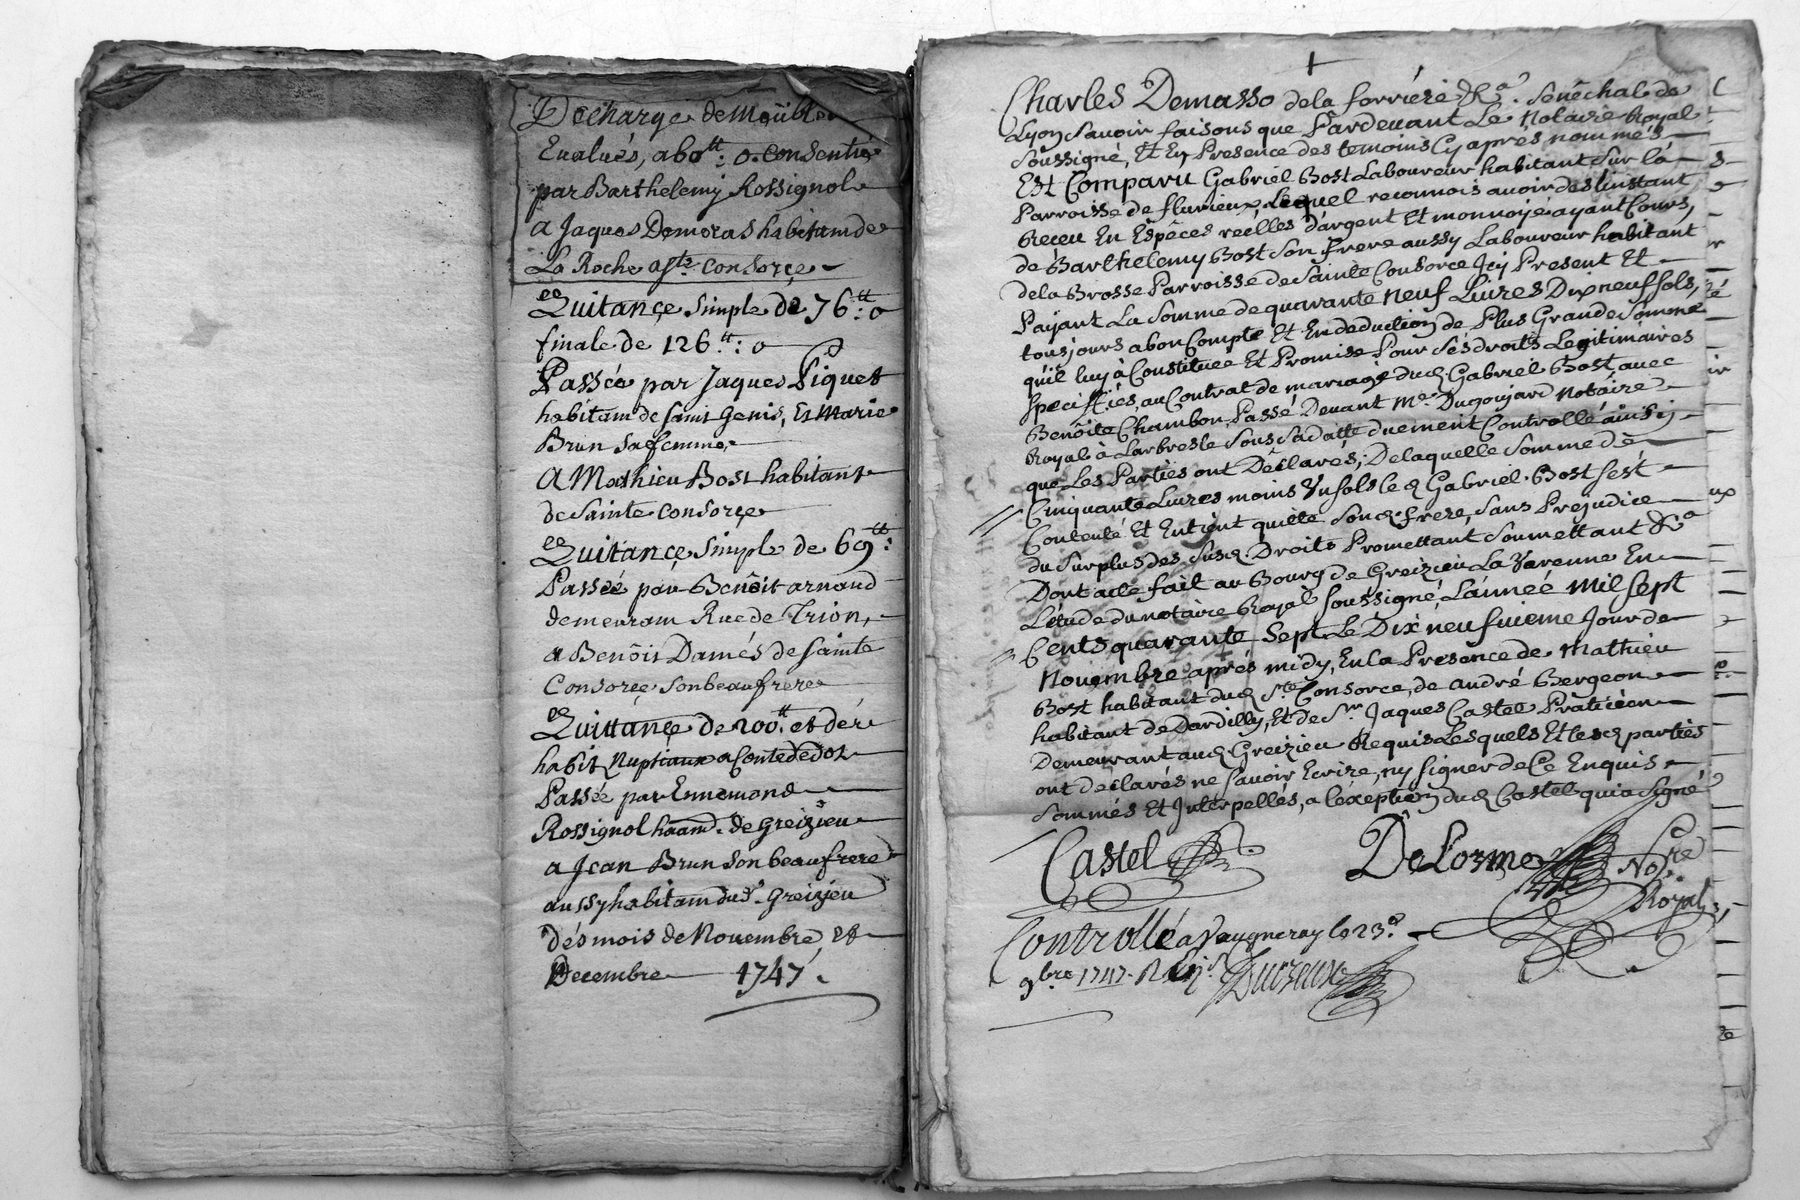 Decharge de Meubles
Evalués, a 60tt: o. consentie
par Barthelemy Rossignol
a Jaques Demoras habitam de
La Roche aste consorce
Quitance simple de 76tt: o
finale de 126tt: o
Passée par Jaques Piquet
habitam de saint Genis, Et Marie
Brun sa femme
A Mathieu Bost habitant
de Sainte consorce
Quitance simple de 69tt:
Passée par Benôit arnaud
demeuram Rue de Trion,
a Benôit Damés de sainte
Consorce son beaufrere
Quittance de 200tt et dér
habit Nuptiaux a Conte de dot
Passée par Ennemond
Rossignol haam. de Greizieu
a Jean Brun son beaufrere
aussy habitam dud. Greizieu
dés mois de Novembre, et
Decembre 1747.
Charles Demasso de la ferriere &ca. Senêchal de
Lyon Savoir faisons que Pardevant Le Notaire Royal
Soussigné, Et En Presence des temoins Cy aprés nommés
Est Comparu Gabriel Bost Laboureur habitant Sur la
Parroisse de fleurieux, Lequel reconnois avoir des l'instant
Receu En Espéces reélles d'argent Et monnoye ayant Cours,
de Barthelemy Bost Son frere aussy Laboureur habitant
de la Brosse Parroisse de Sainte Consorce Icy Present Et
Payant La Somme de quarante Neuf Livres Dix neuf sols,
tousjours a bon Compte Et En deduction de Plus Grande Somme
qu'il luy à Constituée Et Promise Pour Ses droits Legitimaires
Speciffiés, au Contrat de mariage dud. Gabriel Bost avec
Benôite Chambon, Passé Devant Me. Dugoujard Notaire
Royal à Larbresle Sous Sa datte duement Controllé ainsi
que Les Parties ont Déclarés, De laquelle Somme de
Cinquante Livres moins Un sols led. Gabriel Bost s'ést
Contenté Et Entient quitte Sond. frere, Sans Prejudice
du Surplus des Susd. Droits Promettant Soumettant &ca
Dont acte fait au Bourg de Greizieu La Varenne En
L'étude du notaire Royal soussigné, L'année Mil Sept
Cents quarante Sept Le Dix neufvieme Jour de
Novembre aprés midy, En la Presence de Mathieu
Bost habitant dud. Ste. Consorce, de André Bergeon
habitant de Dardilly, Et de Sr. Jaques Castel Praticien
Demeurant aud. Greizieu Requis Lesquels Et lesd. parties
ont declarés ne Savoir Ecrire, ny signer de Ce Enquis
Sommés Et Interpellés, a l'éxeption dud. Castel qui a signé
Castel
DeLorme Nore
Royal
Controllé a Vaugneray le 23e.
9bre 1747. R